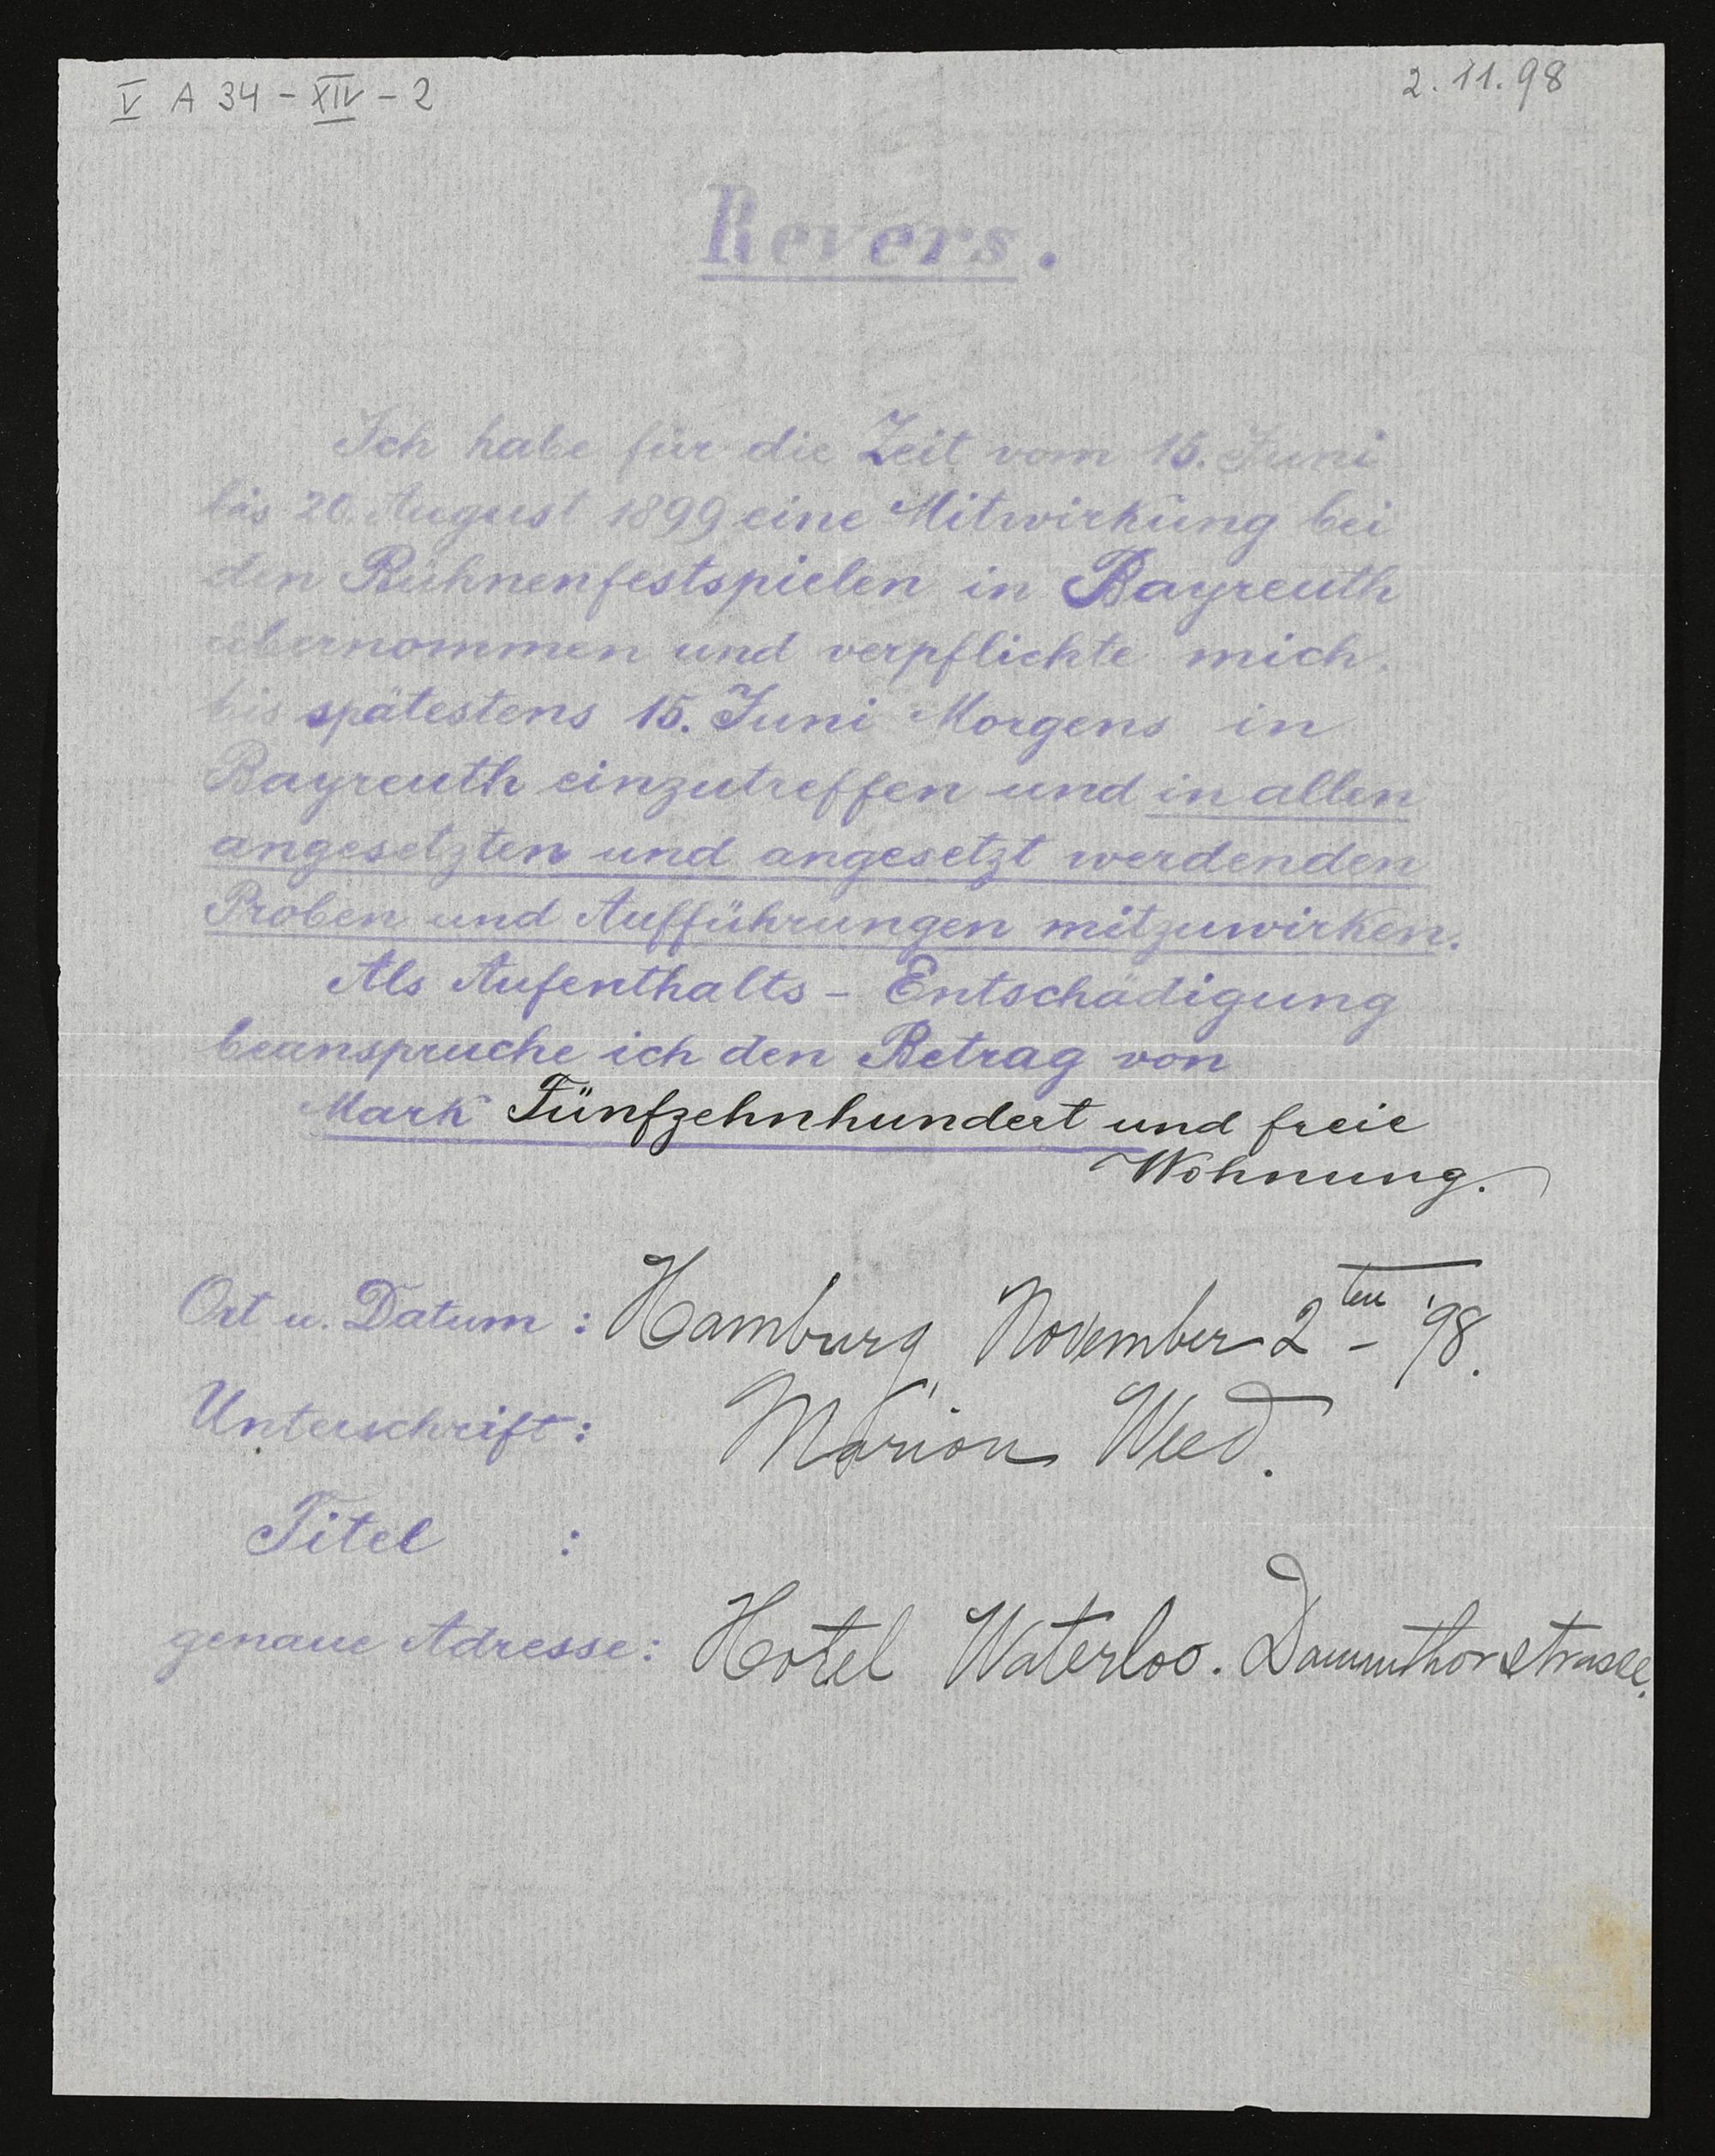 V A 34 - XIV - 2
2.11.98
Revers.
Ich habe für die Zeit vom 15. Juni
bis 20. August 1899 eine Mitwirkung bei
den Bühnenfestspielen in Bayreuth
übernommen und verpflichte mich,
bis spätestens 15. Juni Morgens in
Bayreuth einzutreffen und in allen
angesetzten und angesetzt werdenden
Proben und Aufführungen mitzuwirken.
Als Aufenthalts - Entschädigung
beanspruche ich den Betrag von
Mark Fünfzehnhundert und freie
Wohnung.
Ort u. Datum : Hamburg, November 2ten - '98.
Unterschrift : Marion Weed.
Titel :
genaue Adresse : Hotel Waterloo. Dammthorstrasse.